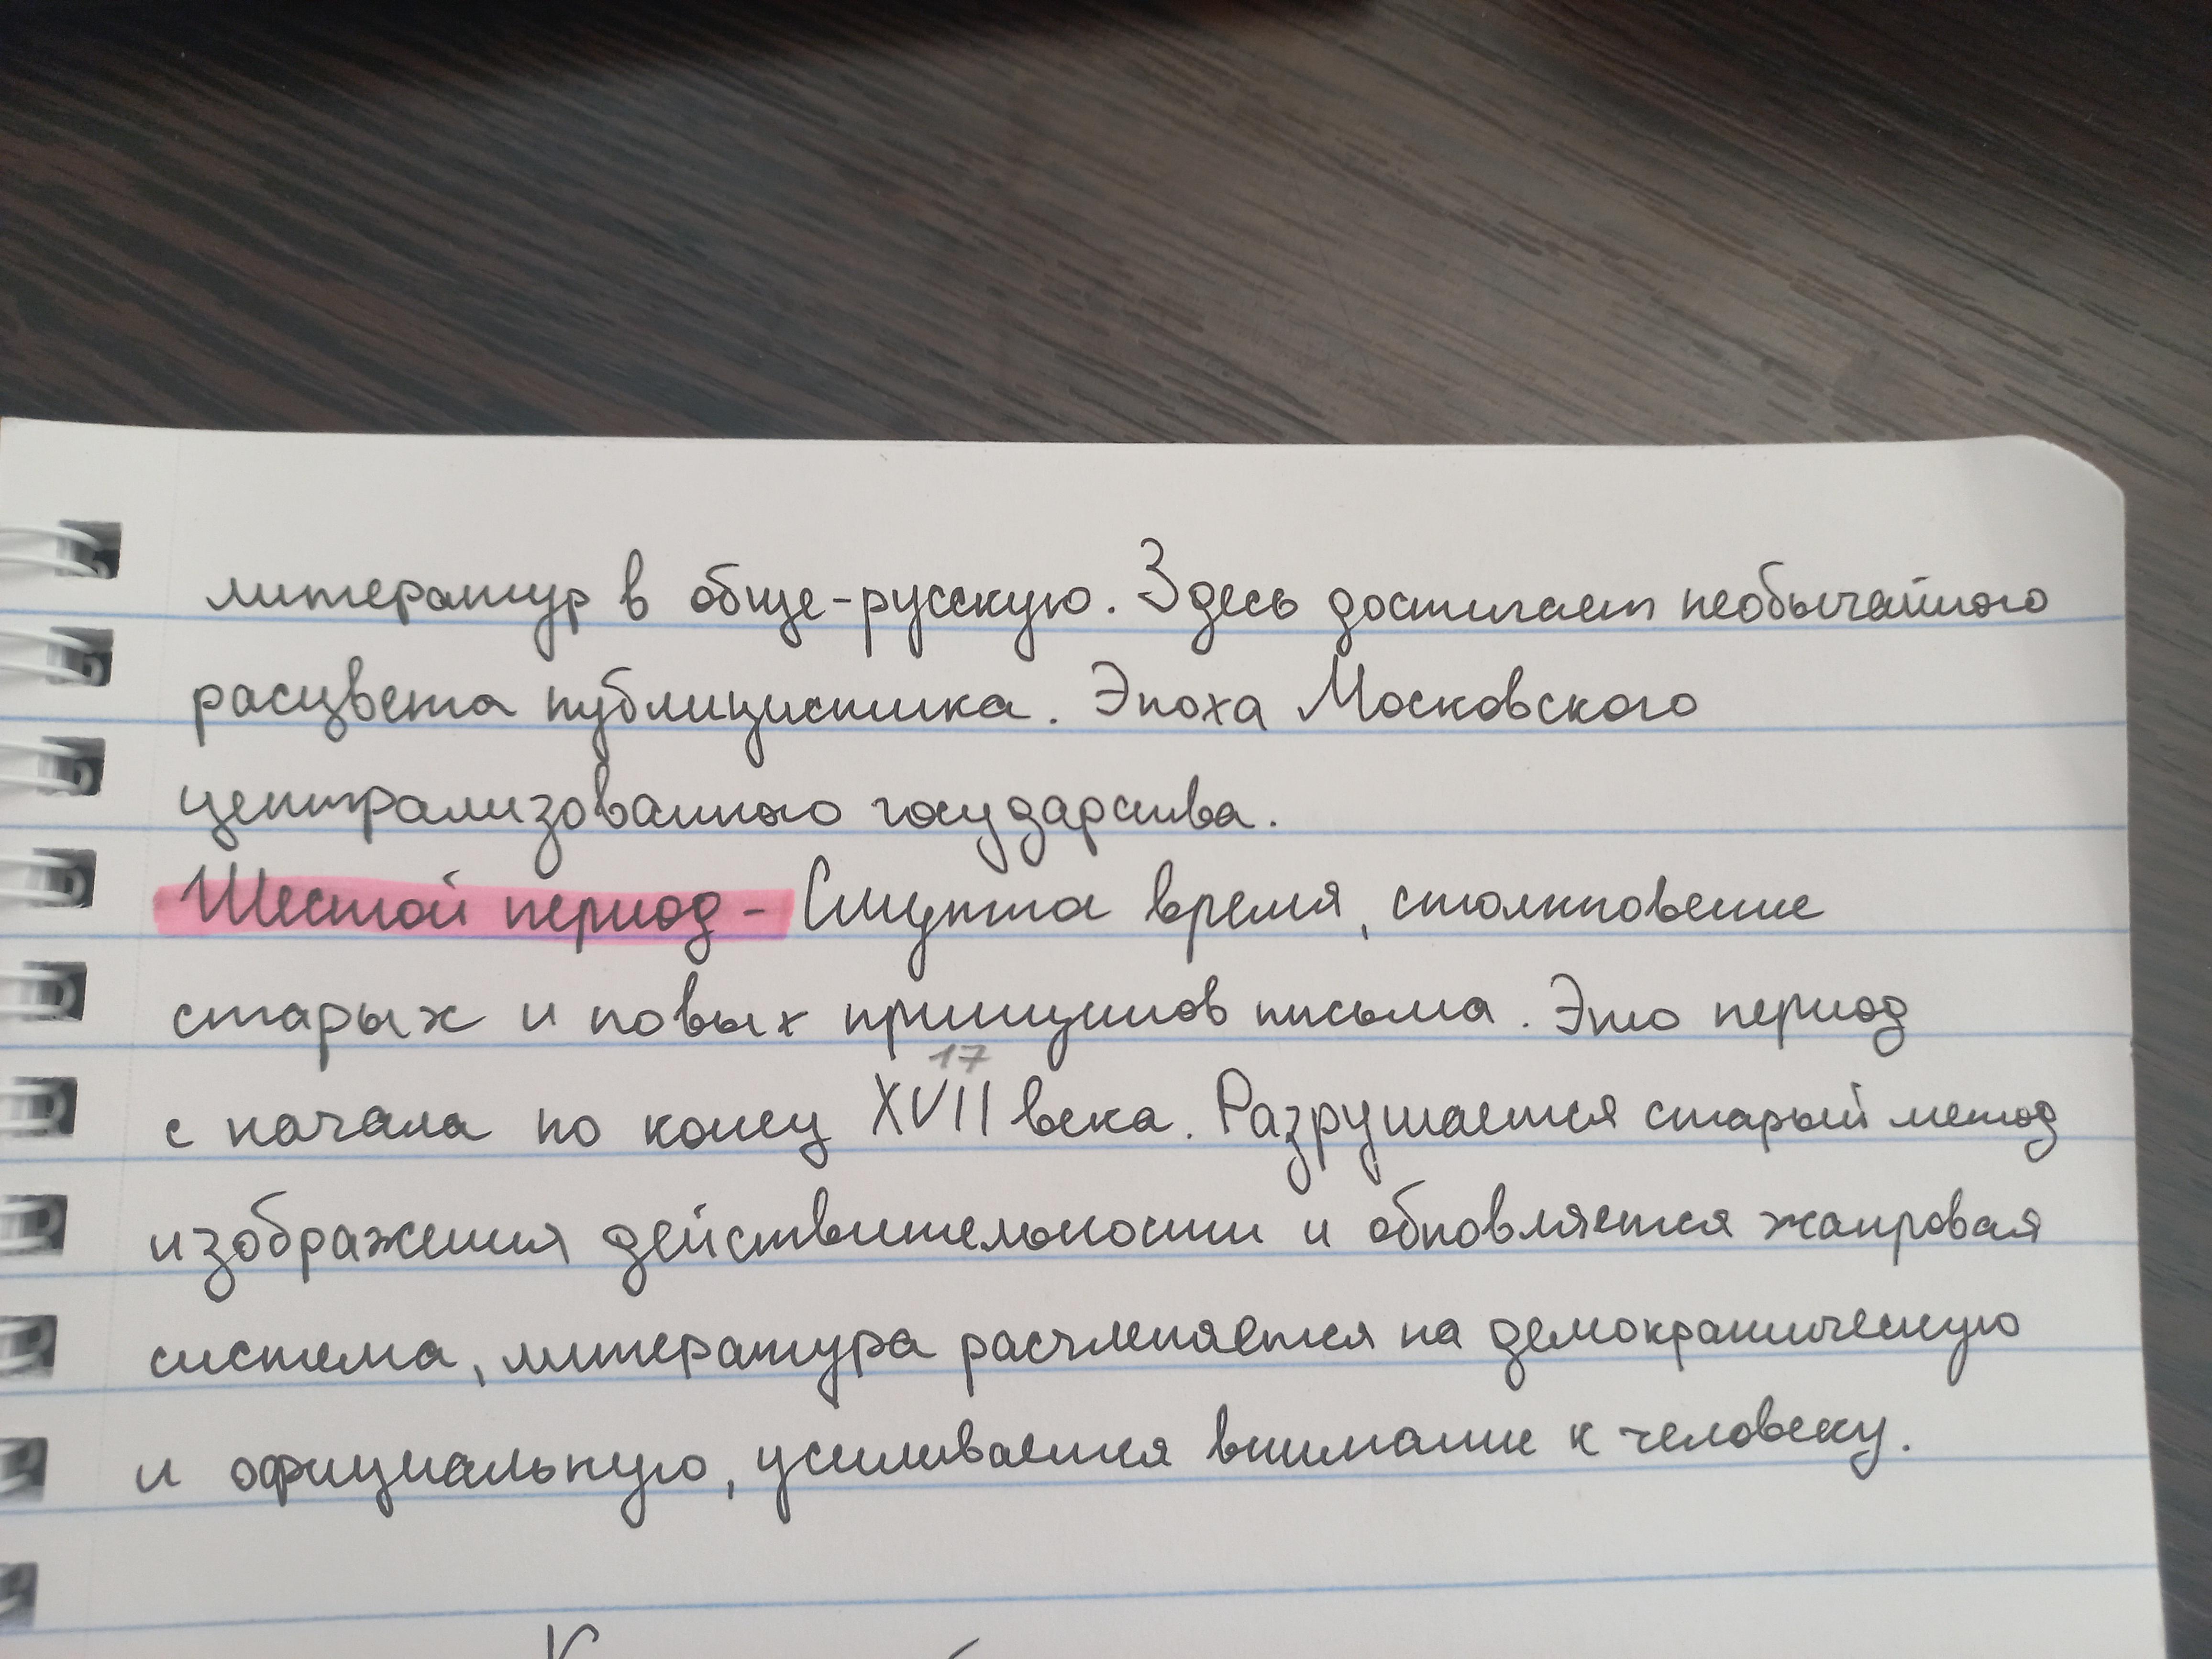 литератур в обще-русскую. Здесь достигает необычайного
расцвета публицистика. Эпоха Московского
централизованного государства.
Шестой период - Смутна время, столкновение
старых и новых принципов письма. Это период
17
с начала по конец XVII века. Разрушается старый метод
изображения действительности и обновляется жанровая
система, литература расчленяется на демократическую
и официальную, усиливается внимание к человеку.